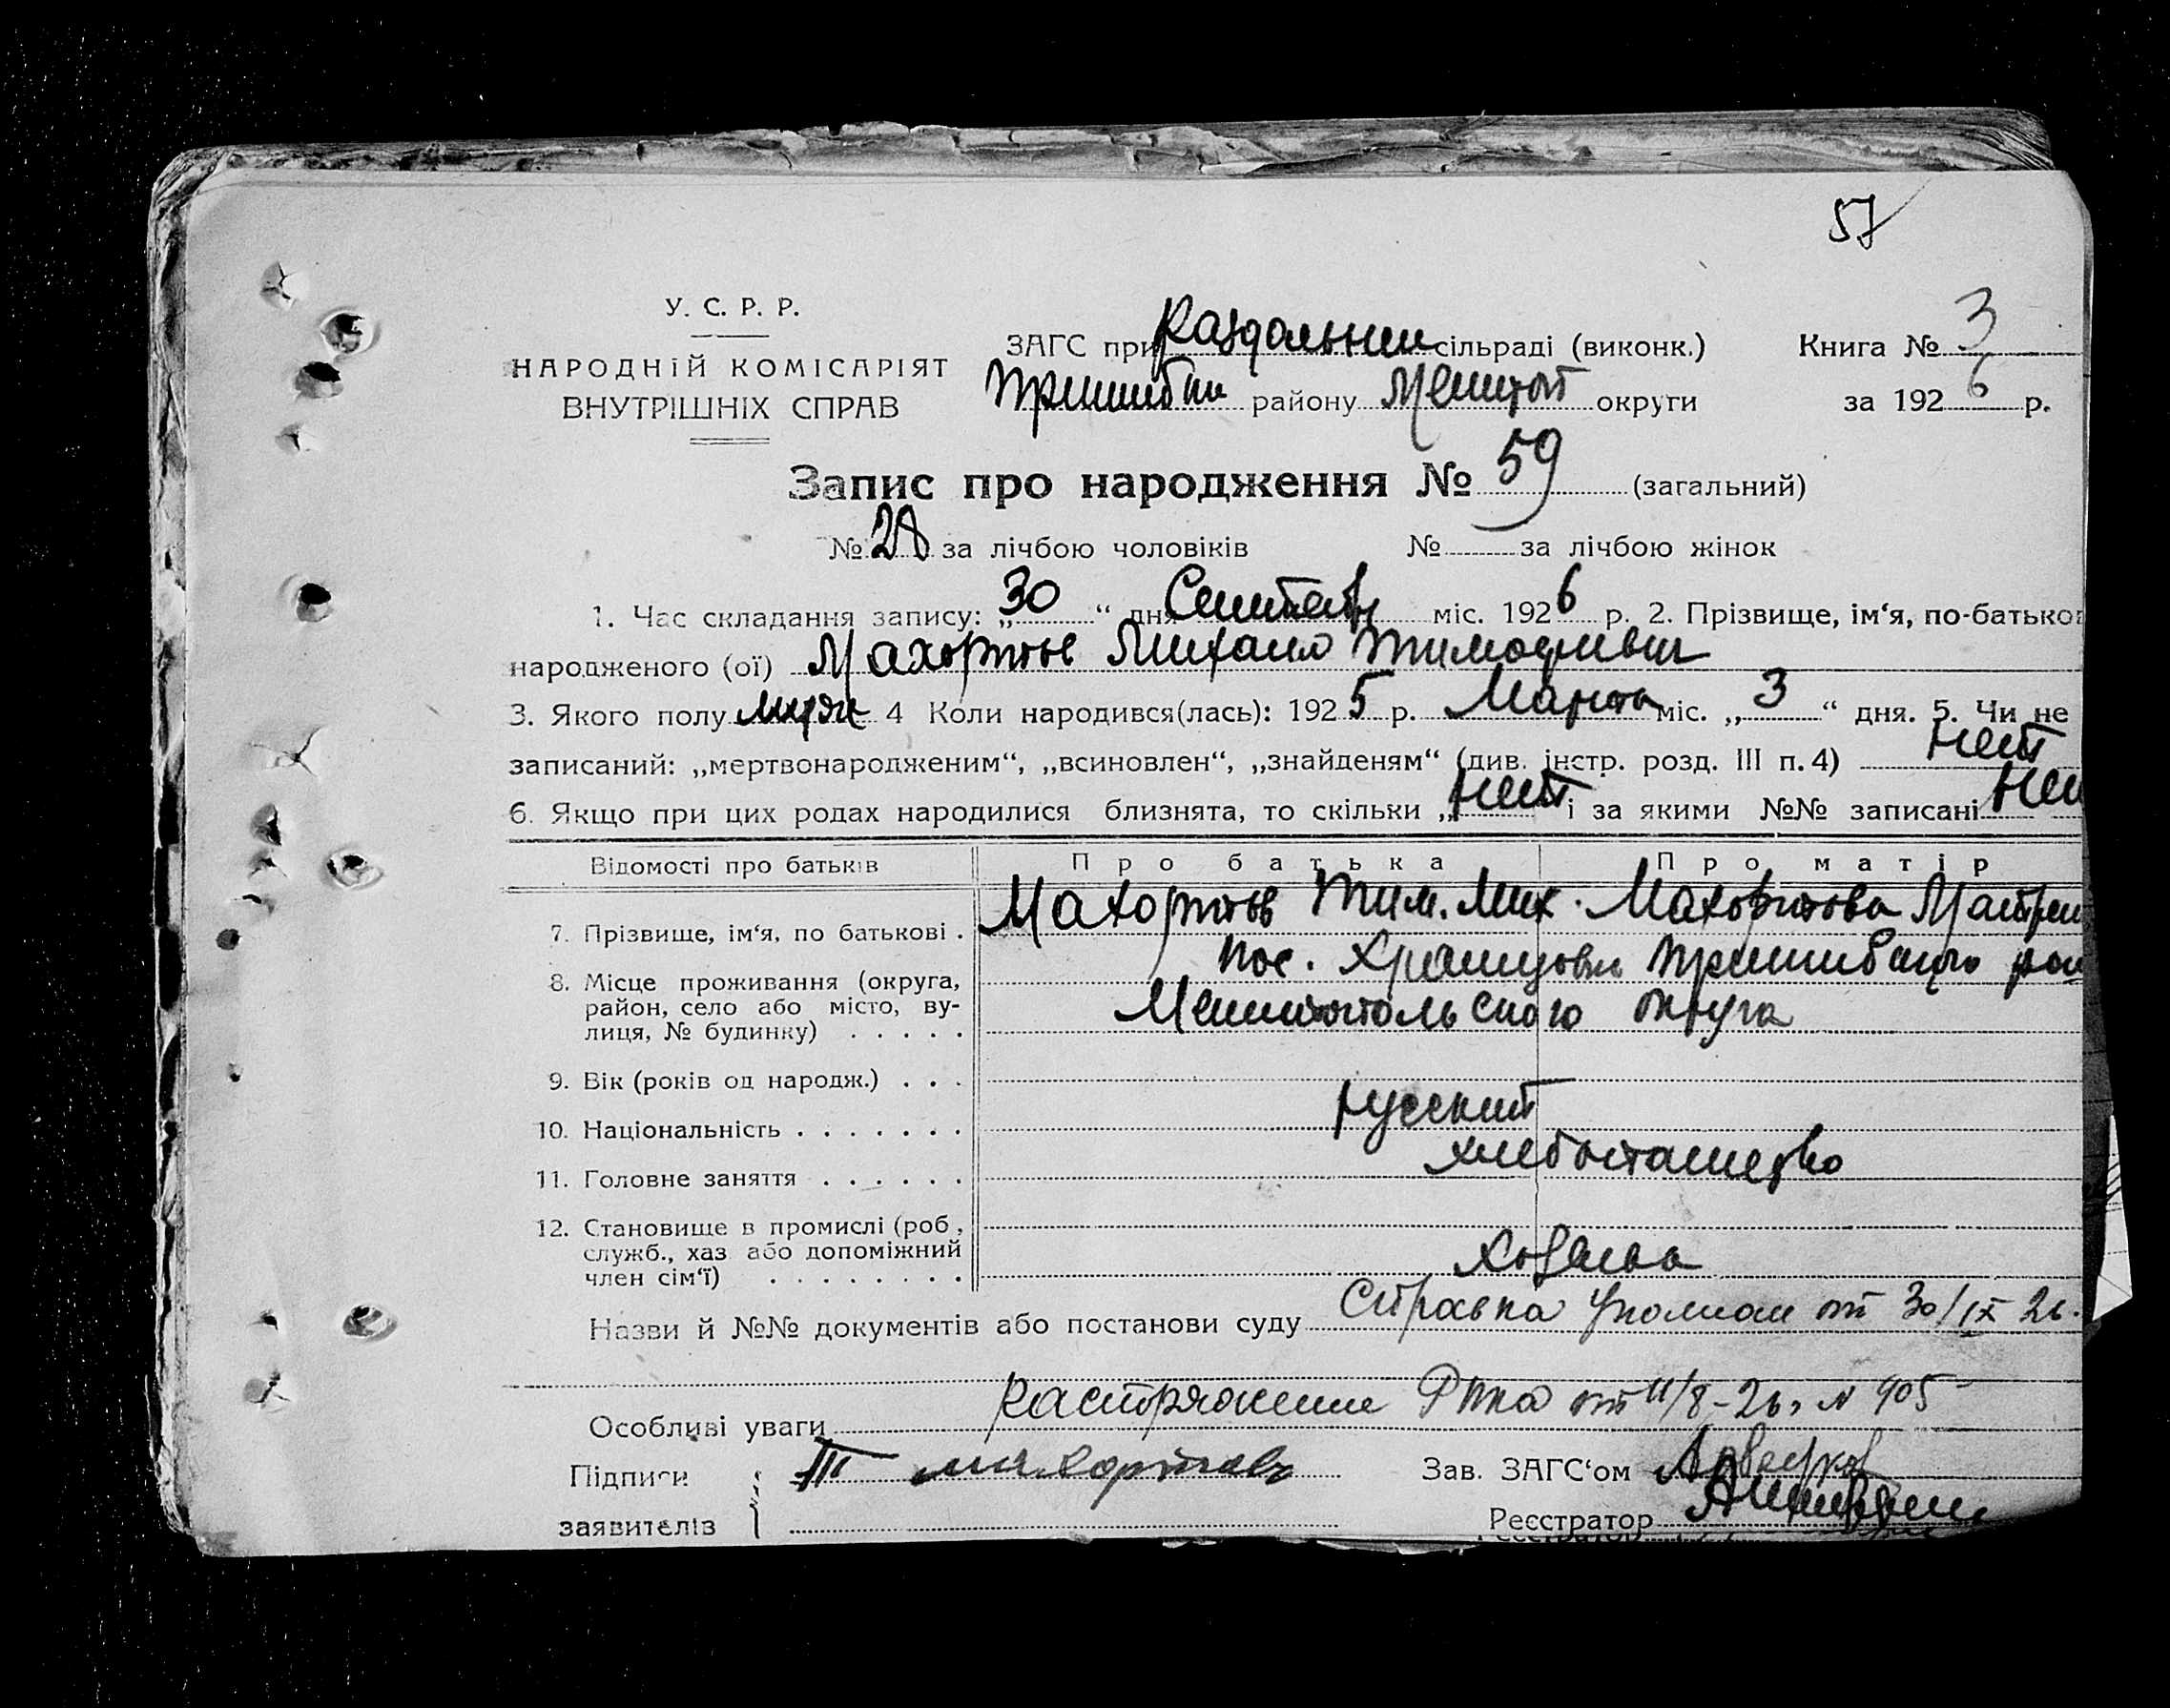 57
У. С. Р. Р.
НАРОДНІЙ КОМІСАРІЯТ
ВНУТРІШНІХ СПРАВ
ЗАГС при Раздольнен сільраді (виконк.) Книга № 3
Пришибск району Мелитоп округи за 1926 р.
Запис про народження № 59 (загальний)
№ 28 за лічбою чоловіків № за лічбою жінок
1. Час складання запису: „30“ дня Сентября міс. 1926 р. 2. Прізвище, ім‘я, по-батьков
народженого (ої) Махортов Михаил Тимофиевич
3. Якого полу мужск 4 Коли народився(лась): 1925 р. Марта міс. „3“ дня. 5. Чи не
записаний: „мертвонародженим“, „всиновлен“, „знайденям“ (див. інстр. розд. III п. 4) нет
6. Якщо при цих родах народилися близнята, то скільки „нет і за якими №№ записані не
Відомості про батьків Про батька Про матір
7. Прізвище, ім‘я, по батькові . Махортов Тим. Мих. Махортова Матрен
8. Місце проживання (округа, район, село або місто, ву-лиця, № будинку) . . . . . пос. Пришибского рай
Мелитопольского округа
9. Вік (років од народж.) . . .
10. Національність . . . . . . . русский
11. Головне заняття . . . . . . хлебопашество
12. Становище в промислі (роб, служб., хаз або допоміжний член сім‘ї) . . . . . . . . хозяева
Назви й №№ документів або постанови суду Справка от 30/IX 26.
Особливі уваги Распряжение от 11/8-26, N 905
Підписи Т Махортовъ Зав. ЗАГС‘ом
заявителів Реєстратор